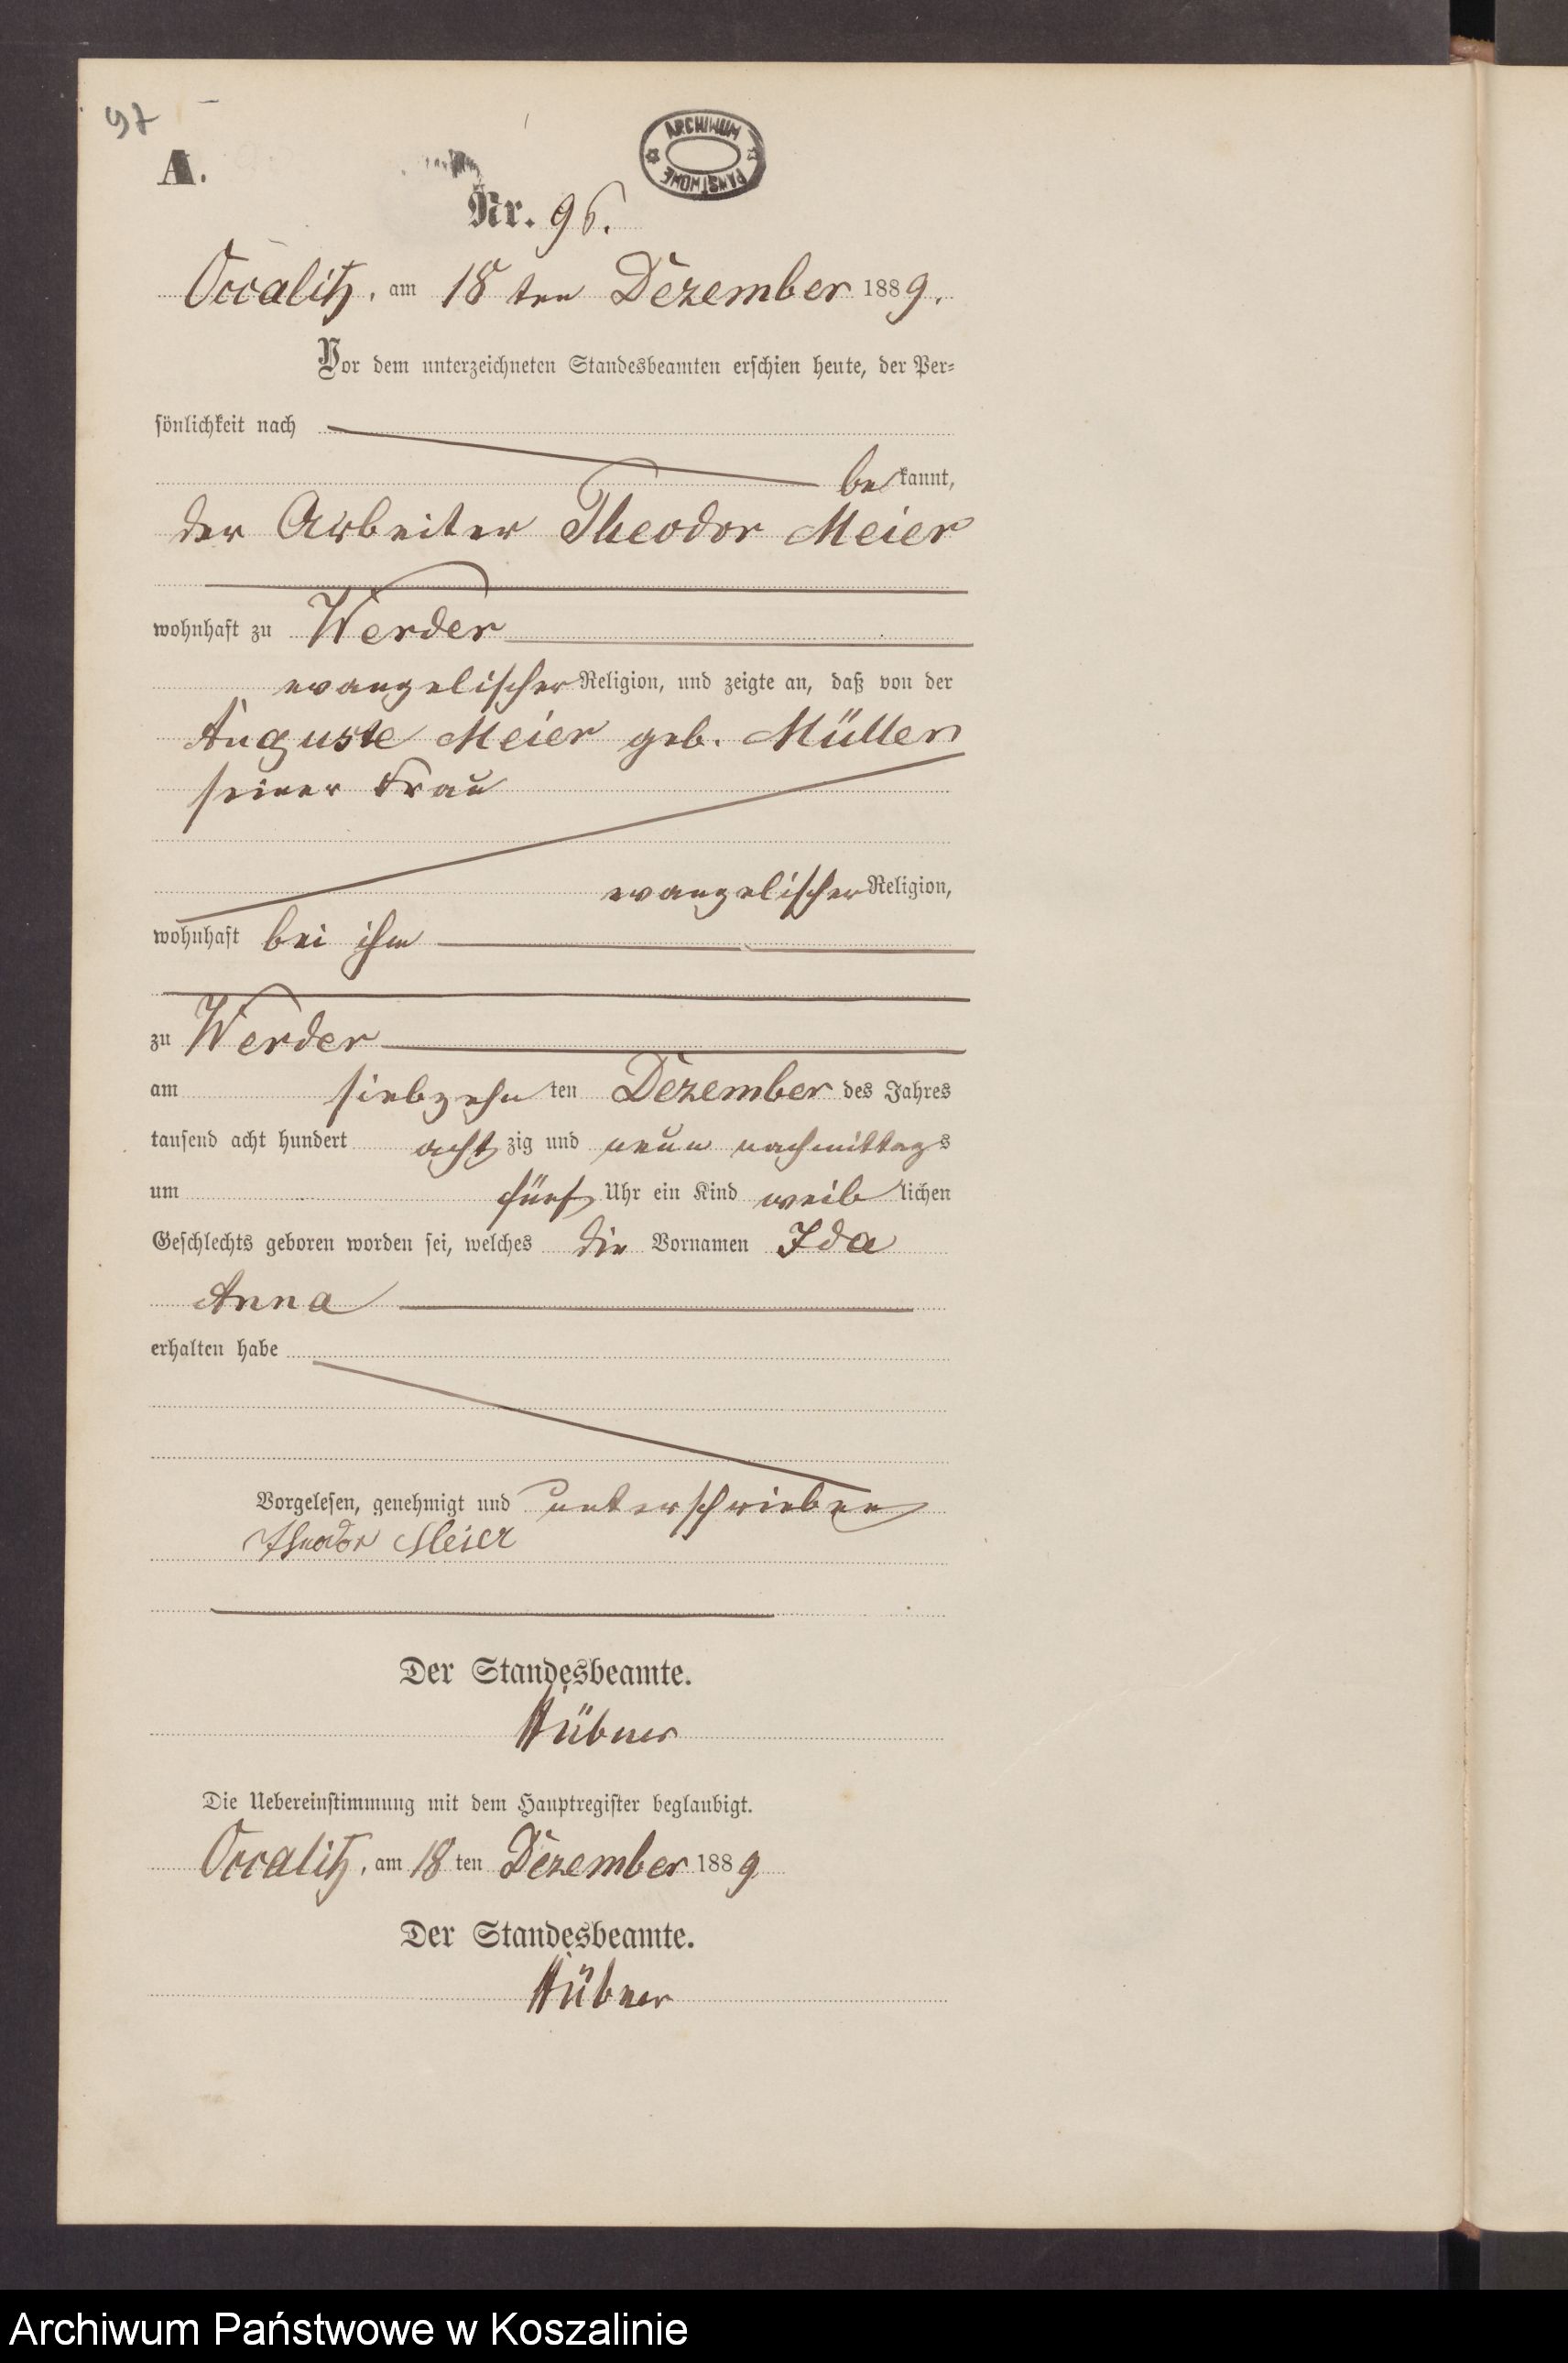 97
ARCHIWUM PAŃSTWOWE
A.
Nr. 96.
Occalitz, am 18 ten Dezember 1889.
Vor dem unterzeichneten Standesbeamten erschien heute, der Per-
sönlichkeit nach
bekannt,
der Arbeiter Theodor Meier
wohnhaft zu Werder
evangelischer Religion, und zeigte an, daß von der
Auguste Meier geb. Müller
seiner Frau
evangelischer Religion,
wohnhaft bei ihm
zu Werder
am siebzehn ten Dezember des Jahres
tausend acht hundert achtzig und neun nachmittags
um fünf Uhr ein Kind weiblichen
Geschlechts geboren worden sei, welches die Vornamen Ida
Anna
erhalten habe
Vorgelesen, genehmigt und unterschrieben
Theodor Meier
Der Standesbeamte.
Hübner
Die Uebereinstimmung mit dem Hauptregister beglaubigt.
Occalitz, am 18 ten Dezember 1889
Der Standesbeamte.
Hübner
Archiwum Państwowe w Koszalinie